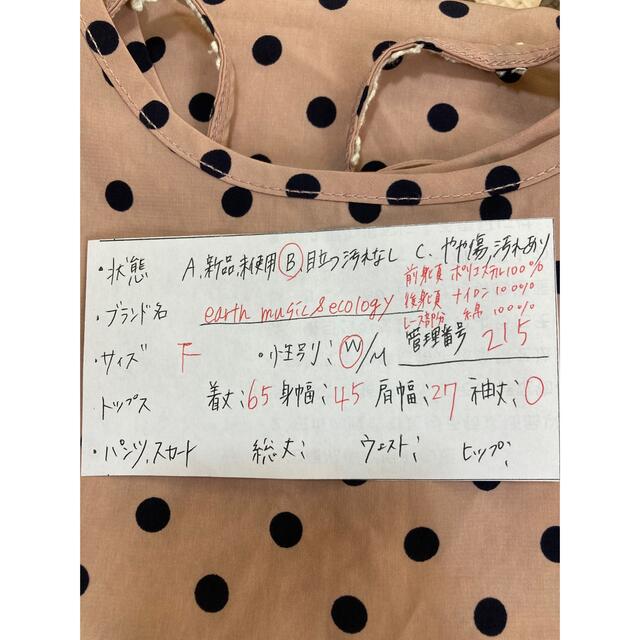 ・状態 A.新品,未使用 B.目立つ汚れなし C.やや傷,汚れあり
前身頃 ポリエステル100%
・ブランド名 earth music&ecology 後身頃 ナイロン100%
レース部分 綿100%
・サイズ F ・性別:W/M 管理番号 215
トップス 着丈:65 身幅:45 肩幅:27 袖丈:0
・パンツ,スカート 総丈: ウエスト: ヒップ: